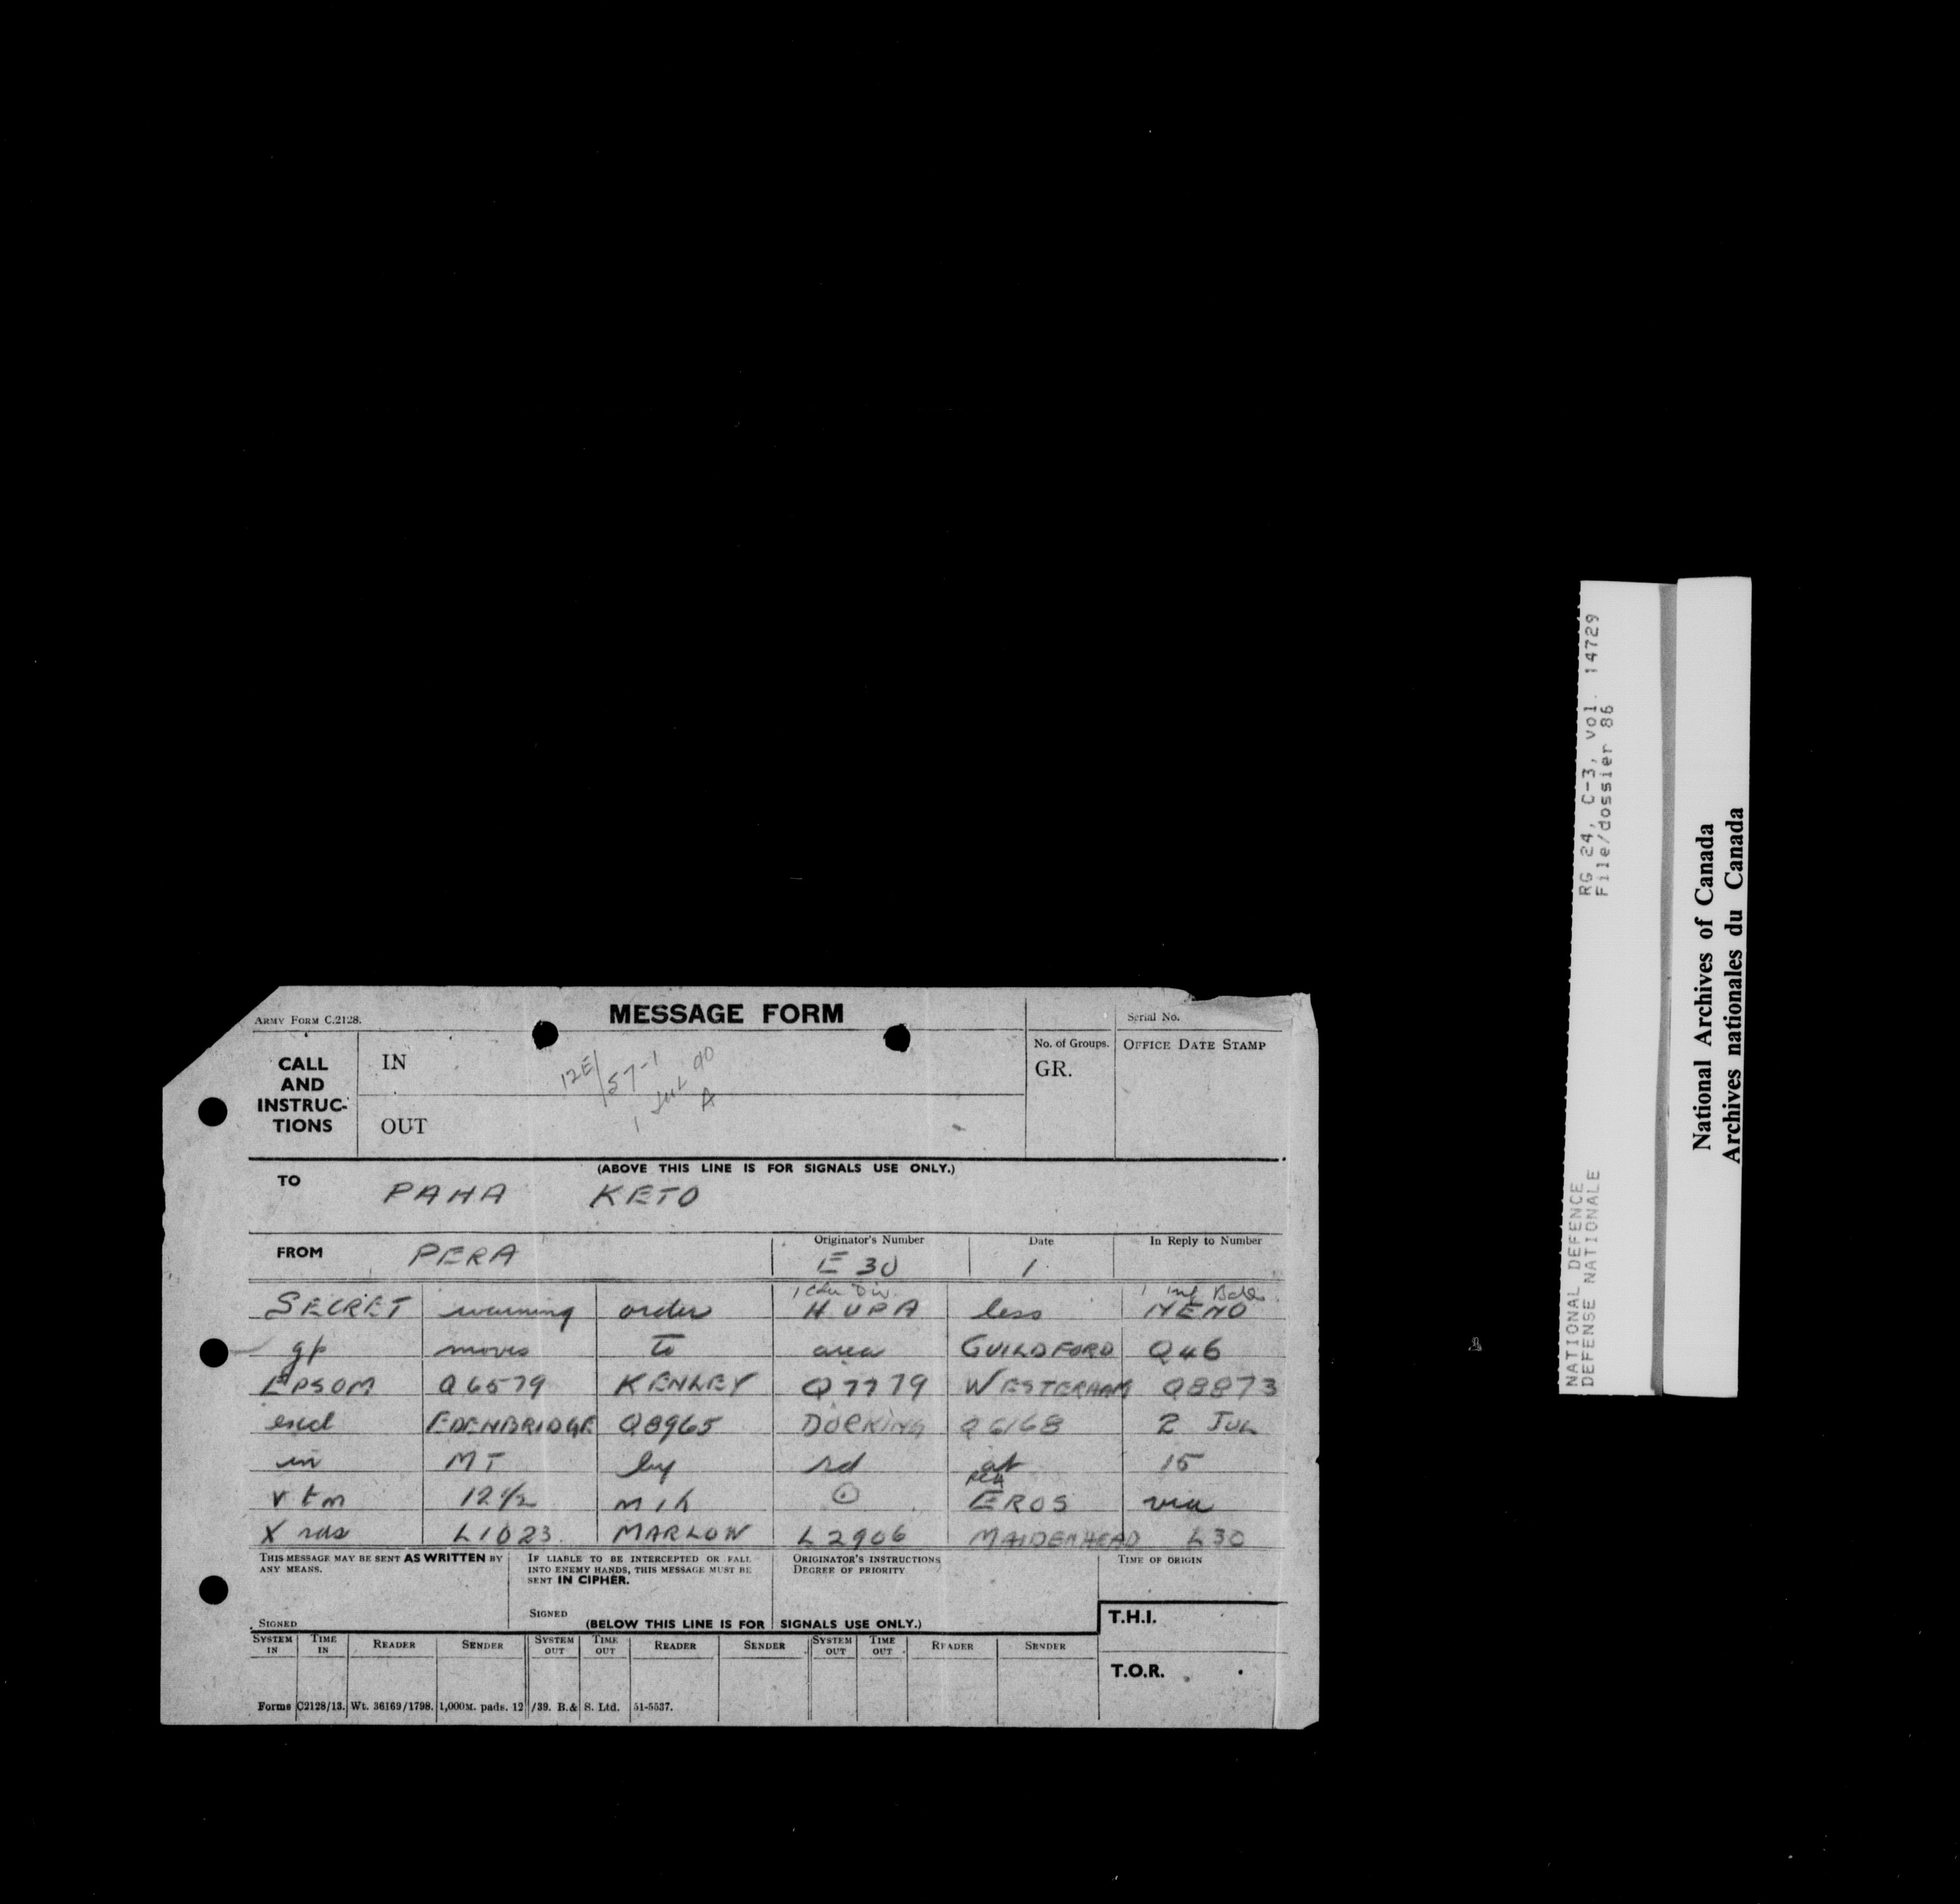 ARMY FORM C.2128.
MESSAGE FORM
Serial No.
CALL AND INSTRUC-TIONS
IN
12E/57-1
1 Jul 40
A
OUT
No. of Groups.
GR.
OFFICE DATE STAMP
(ABOVE THIS LINE IS FOR SIGNALS USE ONLY.)
TO PAHA KETO
FROM PERA
Originator's Number E 30
Date 1
In Reply to Number
1 Cdn Div. 1 Inf Bde.
SECRET warning order HUPA less NEMO
gp moves to area GUILDFORD Q46
EPSOM Q6579 KENLEY Q7779 WESTERHAM Q8873
excl EDENBRIDGE Q8965 DORKING Q6168 2 JUL
in MT by rd at 15
vtm 12½ mih ⊙ EROS via
X rds L1023 MARLOW L2906 MAIDENHEAD L30
THIS MESSAGE MAY BE SENT AS WRITTEN BY ANY MEANS.
SIGNED
IF LIABLE TO BE INTERCEPTED OR FALL INTO ENEMY HANDS, THIS MESSAGE MUST BE SENT IN CIPHER.
SIGNED
ORIGINATOR'S INSTRUCTIONS
DEGREE OF PRIORITY
TIME OF ORIGIN
(BELOW THIS LINE IS FOR SIGNALS USE ONLY.)
T.H.I.
SYSTEM IN TIME IN READER SENDER SYSTEM OUT TIME OUT READER SENDER SYSTEM OUT TIME OUT READER SENDER
T.O.R.
Forms C2128/13. Wt. 36169/1798. 1,000M. pads. 12/39. B.& S. Ltd. 51-5537.
NATIONAL DEFENCE RG 24, C-3, vol. 14729
DEFENSE NATIONALE File/dossier 86
National Archives of Canada
Archives nationales du Canada